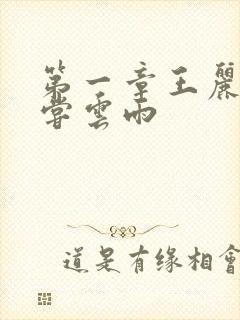 第一章王麗
嘗雲雨
道是有缘相會